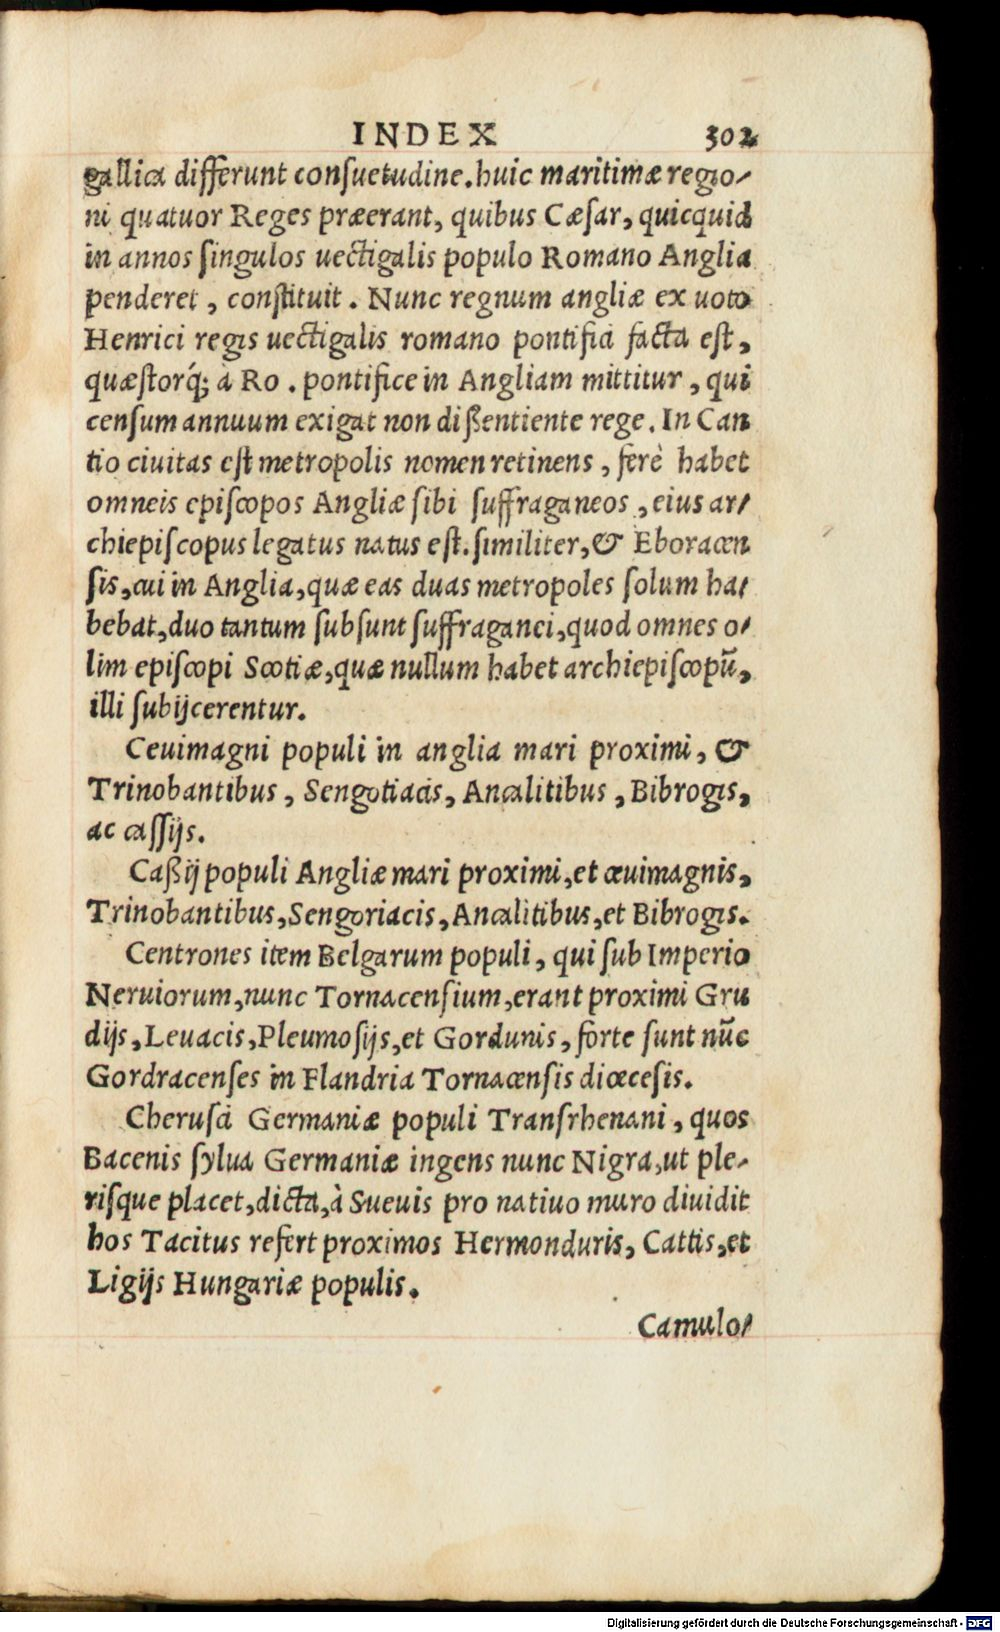 INDEX 302
gallica differunt consuetudine.huic maritimæ regio-
ni quatuor Reges præerant, quibus Cæsar, quicquid
in annos singulos uectigalis populo Romano Anglia
penderet, constituit. Nunc regnum angliæ ex uoto
Henrici regis uectigalis romano pontifici facta est,
quæstorq́; à Ro. pontifice in Angliam mittitur, qui
censum annuum exigat non dißentiente rege. In Can
tio ciuitas est metropolis nomen retinens, ferè habet
omneis episcopos Angliæ sibi suffraganeos, eius ar-
chiepiscopus legatus natus est.similiter,& Eboracen
sis,cui in Anglia,quæ eas duas metropoles solum ha-
bebat,duo tantum subsunt suffraganei,quod omnes o-
lim episcopi Scotiæ,quæ nullum habet archiepiscopū,
illi subijcerentur.
Ceuimagni populi in anglia mari proximi, &
Trinobantibus, Sengotiacis, Ancalitibus, Bibrogis,
ac cassijs.
Caßij populi Angliæ mari proximi,et ceuimagnis,
Trinobantibus,Sengoriacis,Ancalitibus,et Bibrogis.
Centrones item Belgarum populi, qui sub Imperio
Neruiorum,nunc Tornacensium,erant proximi Gru
dijs,Leuacis,Pleumosijs,et Gordunis, forte sunt nūc
Gordracenses in Flandria Tornacensis diœcesis.
Cherusci Germaniæ populi Transrhenani, quos
Bacenis sylua Germaniæ ingens nunc Nigra,ut ple-
risque placet,dicta,à Sueuis pro natiuo muro diuidit
hos Tacitus refert proximos Hermonduris, Cattis,et
Ligijs Hungariæ populis.
Camulo-
Digitalisierung gefördert durch die Deutsche Forschungsgemeinschaft - DFG